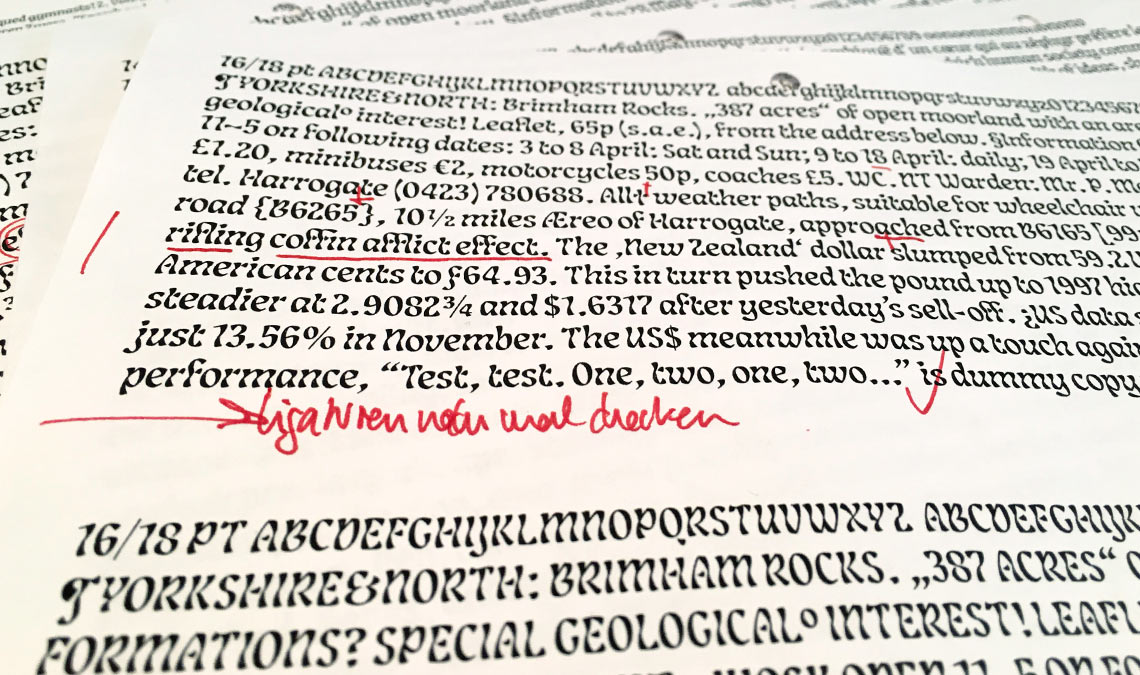 16/18 pt ABCDEFGHIJKLMNOPQRSTUVWXYZ abcdefghijklmnopqrstuvwxyz01234567
¶YORKSHIRE&NORTH: Brimham Rocks. „387 acres“ of open moorland with an
geological° interest! Leaflet, 65p (s.a.e.), from the address below. §Information
11–5 on following dates: 3 to 8 April: Sat and Sun; 9 to 18 April: daily; 19 April to
£1.20, minibuses €2, motorcycles 50p, coaches £5. WC. NT Warden: Mr. P.
tel. Harrogate (0423) 780688. All† weather paths, suitable for wheelchair
road {B6265}, 10½ miles Æreo of Harrogate, approached from B6165 [99
rifling coffin afflict effect. The ‚New Zealand‘ dollar slumped from 59.2
American cents to ƒ64.93. This in turn pushed the pound up to 1997
steadier at 2.9082¾ and $1.6317 after yesterday’s sell-off. ¿US data
just 13.56% in November. The US$ meanwhile was up a touch
performance, “Test, test. One, two, one, two...” is dummy copy
Ligaturen noch mal checken
16/18 PT ABCDEFGHIJKLMNOPQRSTUVWXYZ ABCDEFGHIJK
¶YORKSHIRE&NORTH: BRIMHAM ROCKS. „387 ACRES“
FORMATIONS? SPECIAL GEOLOGICAL° INTEREST! LEAFL